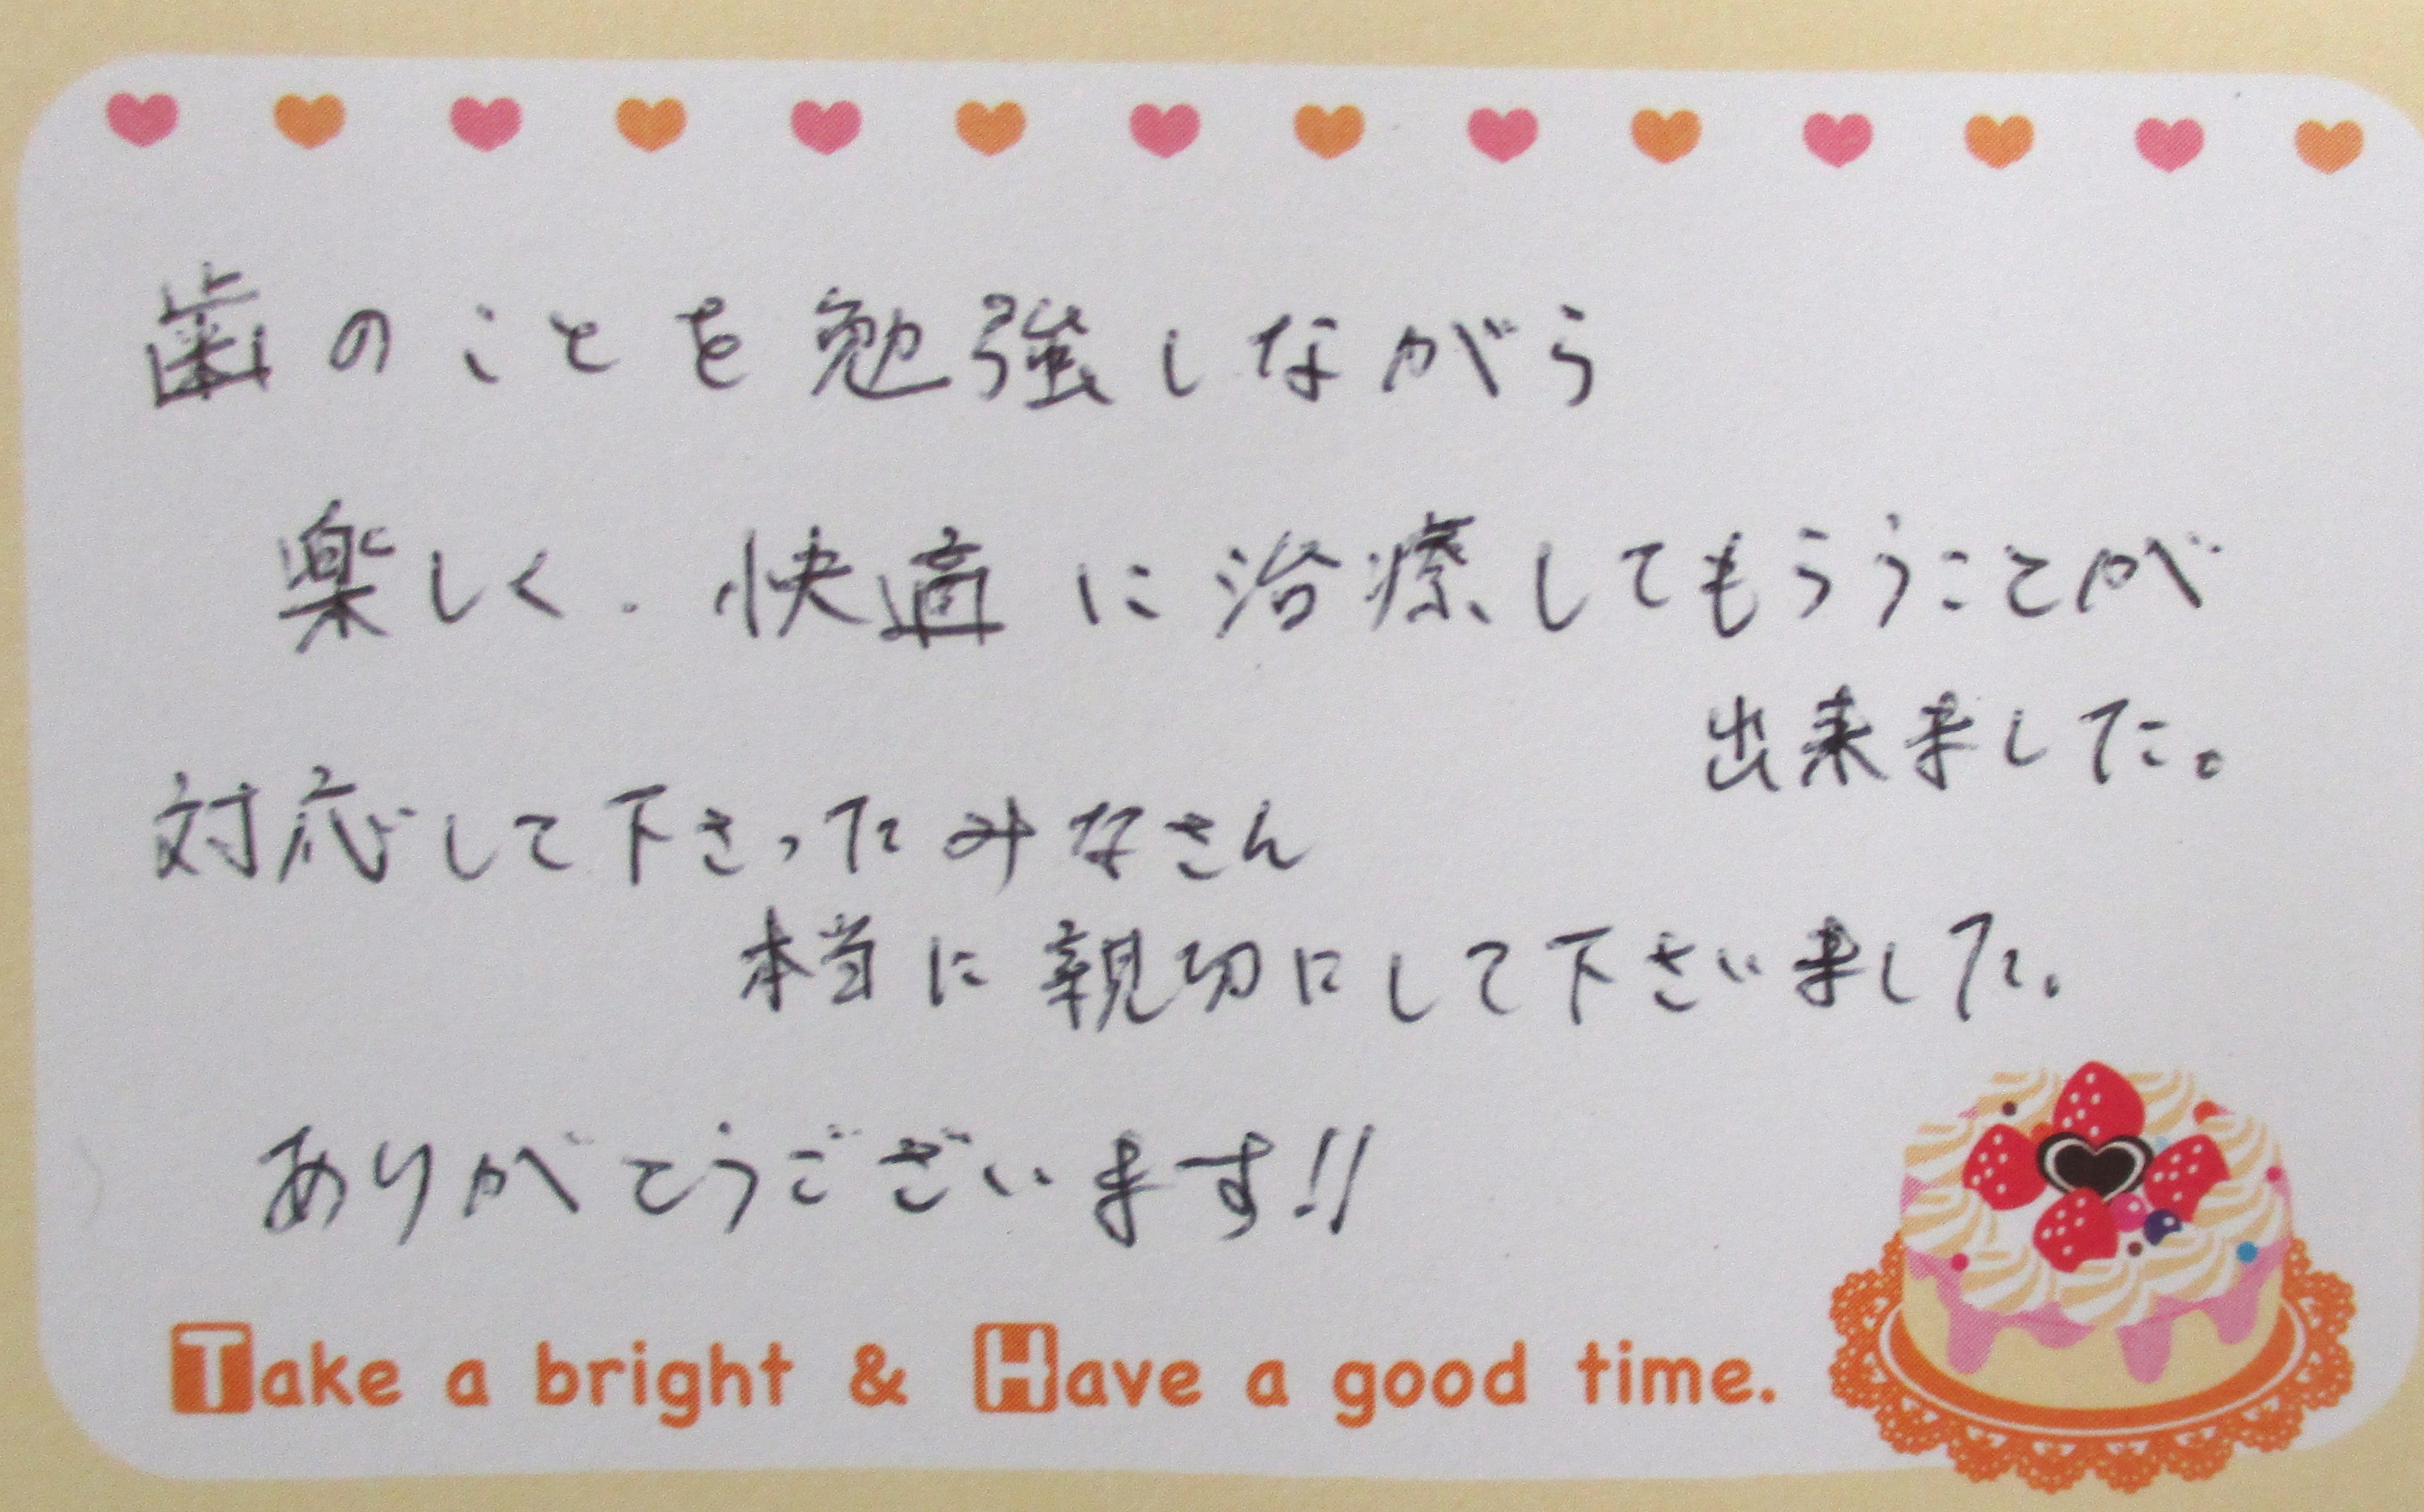 歯のことを勉強しながら
楽しく、快適に治療してもらうことが
出来ました。
対応して下さったみなさん
本当に親切にして下さいました。
ありがとうございます!!
Take a bright & Have a good time.